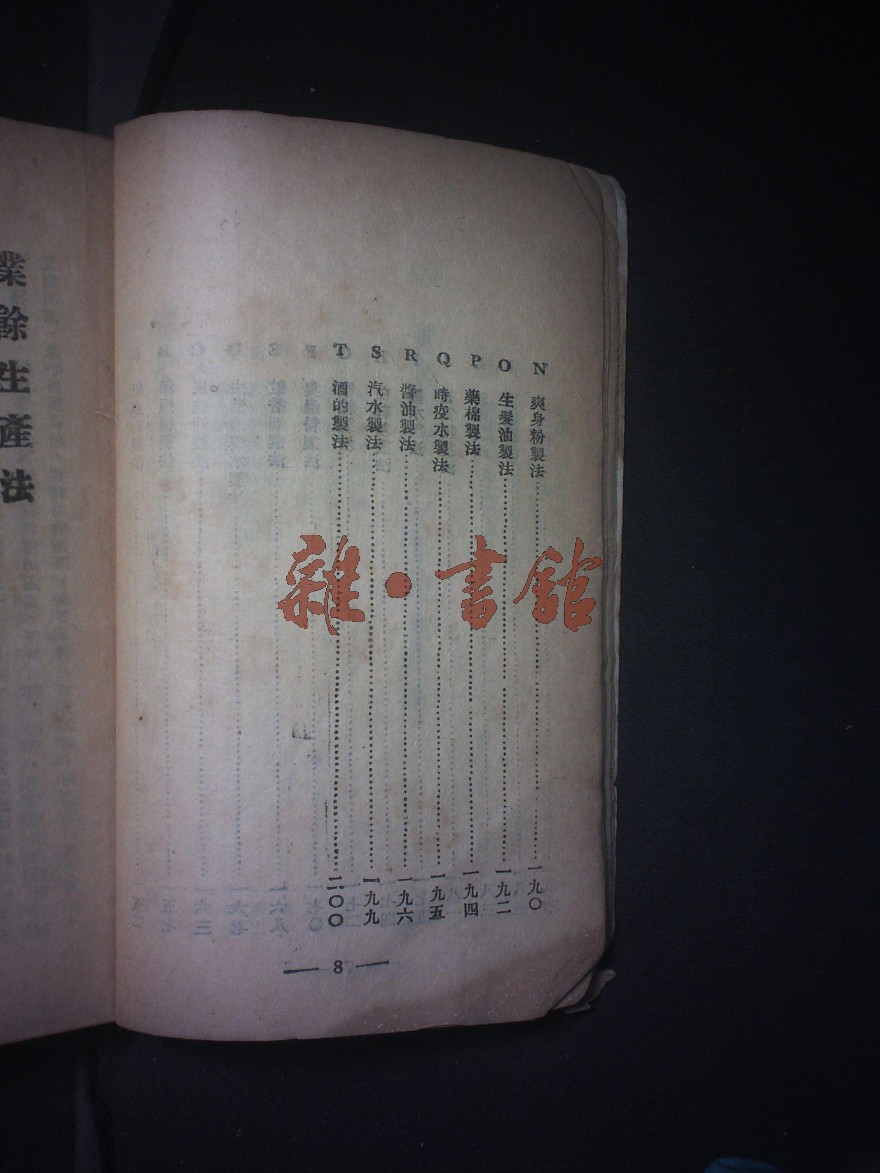 N 爽身粉製法 一九〇
O 生髮油製法 一九二
P 藥棉製法 一九四
Q 時疫水製法 一九五
R 醬油製法 一九六
S 汽水製法 一九九
T 酒的製法 二〇〇
— 8 —
業餘生產法
雜·書館